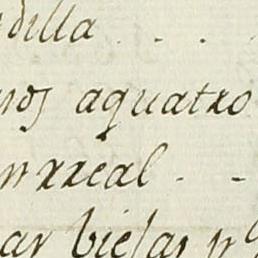 dilla . . .
nos aquatro
nrreal . -
ar biejas pr